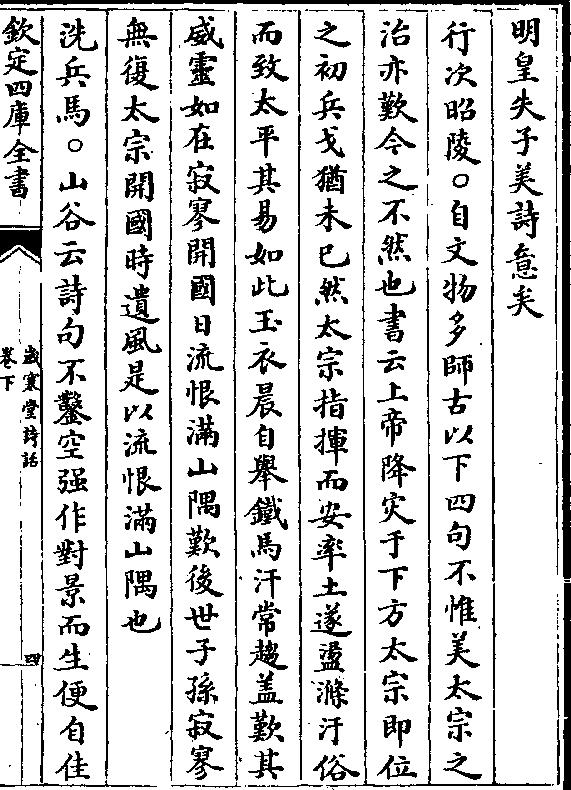 明皇失子美詩意矣
行次昭陵○自文物多師古以下四句不惟美太宗之
治亦歎今之不然也書云上帝降災于下方太宗即位
之初兵戈猶未已然太宗指揮而安率土遂盪滌汙俗
而致太平其易如此玉衣晨自舉鐵馬汗常趨盖歎其
威靈如在寂寥開國日流恨滿山隅歎後世子孫寂寥
無復太宗開國時遺風是以流恨滿山隅也
洗兵馬○山谷云詩句不鑿空强作對景而生便自佳
欽定四庫全書
歲寒堂詩話
卷下
四